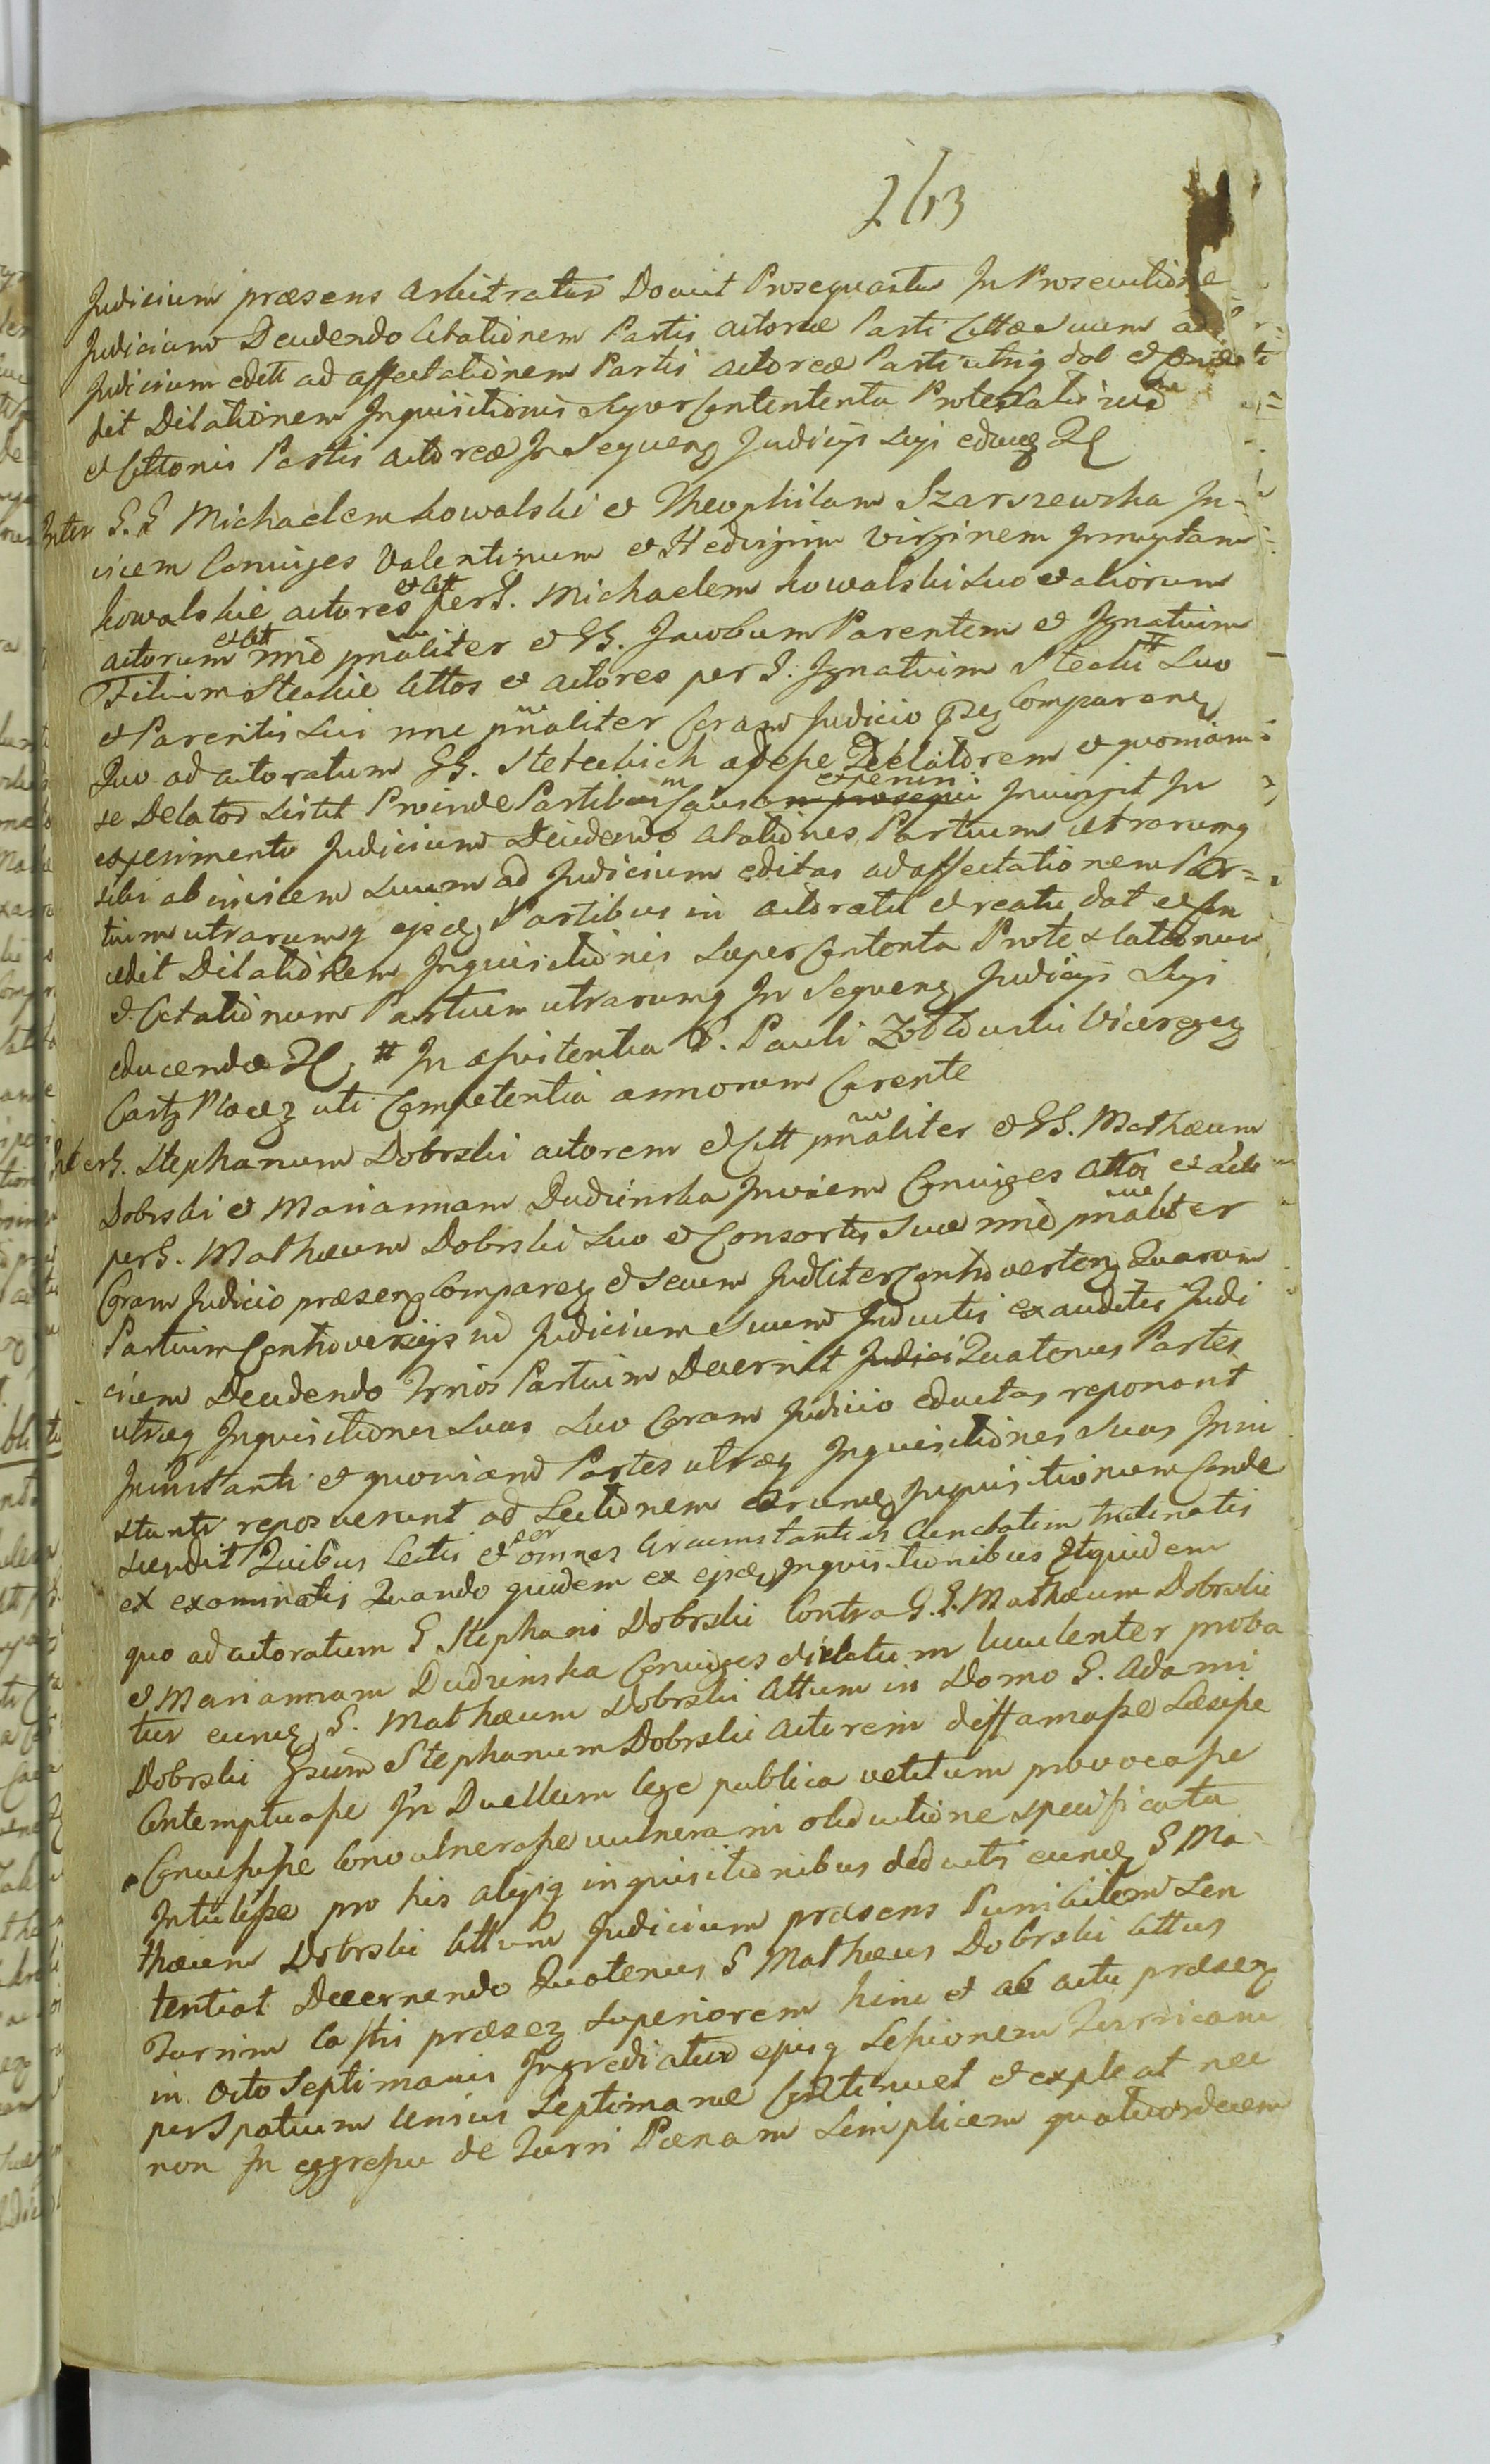 263
Judicium præsens arbitratur Docuit Prosequartur In Prosecutione
Judicium Decidendo Citationem Partis actoreæ Parti Cittæ suum ad
Judicium edett ad affectationem Partis actoreæ Parti utriq dat et
dit Dilationem Inquisitionis super Contententa Protestationis
et Cittonis Partis actoreæ In Sequenz Judicijs suji educez
Inter G. G Michaelem Kowalski et Theophilam Szarszewska In-
vicem Coniuges Valentinum et Hedvigim Virginem Innuptam
Kowalskie actores et Citt per G. Michaelem Kowalski suo et aliorum
actorum et Citt nnie pnaliter et GG. Jacobum Parentem et Ignatium
Filium Steckie Cittos et actores per G. Ignatium Stecki # suo
et Parentis sui nne pnaliter Coram Judicio Comparenz
Quo ad actoratum GG. Steteckich adepe Delatorem et quoniam
se Delator sistit Proinde Partibus in Causa experiri Iniungit In
experimento Judicium Decidendo Citationes Partium utrarumq
sibi ab invicem suum ad Judicium editas ad affectationem Par=
tium utrarumq ejsdz Partibus in actoratu et reatu dat et Con
cedit Dilationem Inquisitionis super Contenta Protestationum
et Citationum Partium utrarumq In Sequenz Judicijs suji
educendæ # In assistentia G. Pauli Vicereg
Castz Plocez uti Competentia annorum Carente
Inter G. Stephanum Dobrski actorem et Citt pnaliter et GG. Mathæum
Dobrski et Mariannam Dudzinska Invicem Coniuges Cittos et acto
per G. Mathæum Dobrski suo et Consortis suæ nnie pnaliter
Coram Judicio præsenz Comparez et secum Judliter Controvertenz Quarum
Partium Controversijs ad Judicium suum Inductis exauditis Judi
cium Decidendo Trnos Partium Decernit Quatenus Partes
utræq Inquisitiones suas suo Coram Judicio eductas reponant
In instanti et quoniam Partes utræq Inquisitiones suas In in
stanti reposuerunt ad Lectionem earumdz Inquisitionum Conde
scendit Quibus Lectis et per omnes Circumstantias Cunctatim trutinatis
et examinatis Quando quidem ex ejsdz Inquisitionibus Siquidem
quo ad actoratum G Stephani Dobrski Contra G.G. Mathæum Dobrski
et Mariannam Dudzinska Coniuges dictatum luculenter proba
tur eundz G. Mathæum Dobrski Cittum in Domo G. Adami
Dobrski Gsum Stephanum Dobrski actorem diffamasse Læsisse
Contemptuasse In Duellum lege publica vetitum provocasse
Concussisse Convulnerasse vulnera in obductione specificata
Intulisse pro his alijsq inquisitionibus deductis eundz G Ma
thæum Dobrski Cittum Judicium præsens Punibilem Sen
tentiat Decernendo Quatenus G Mathæus Dobrski Cittus
Turrim Castri præsez superiorem hinc et ab actu præsenz
in octo Septimanis Ingrediatur ejusq Sessionem Turricam
per Spatium Unius Septimanæ Continuet et expleat nec
non In eggressu de Turri Pænam simplicem quatuordecem